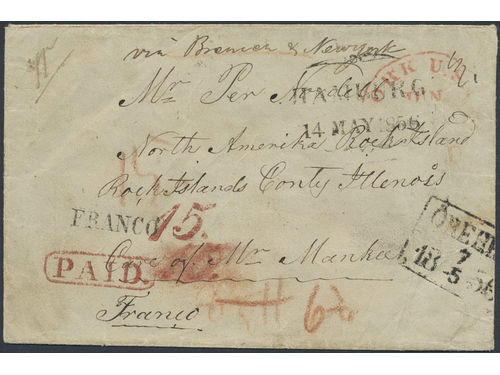 via Bremen & Newyork
YORK U.S.
Mr Per
HAMBURG
14 MAY 1856
North Amerika Rock Island
Rock Islands Conty Illenois
FRANCO 15.
PAID.
Care of Mr Mankel
Franco
7
18 5 56